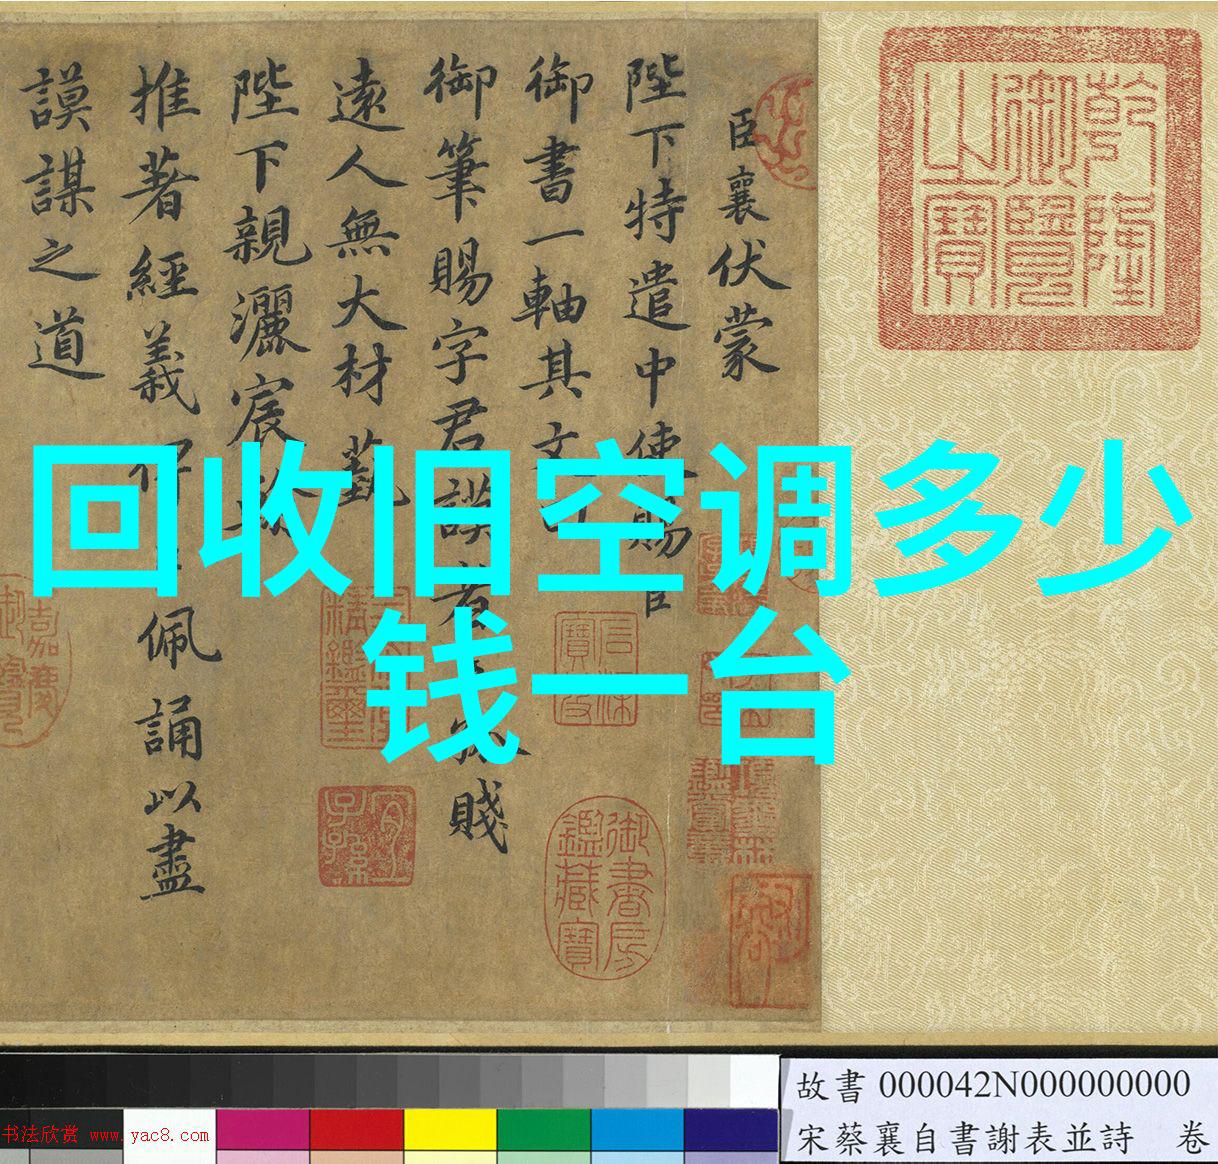 回收旧空调多少
钱一台
臣襄伏蒙
陛下特遣中使賜臣
御書一軸其文曰
御筆賜字君謨者
孤賤
遠人無大材藝
陛下親灑宸
推著經義
佩誦以盡
謨謀之道
乾隆
御覽
之寶
御書房
鑑藏寶
宜
子孫
故書 000042N000000000
宋蔡襄自書謝表並詩 卷
书法欣赏 www.yac8.com